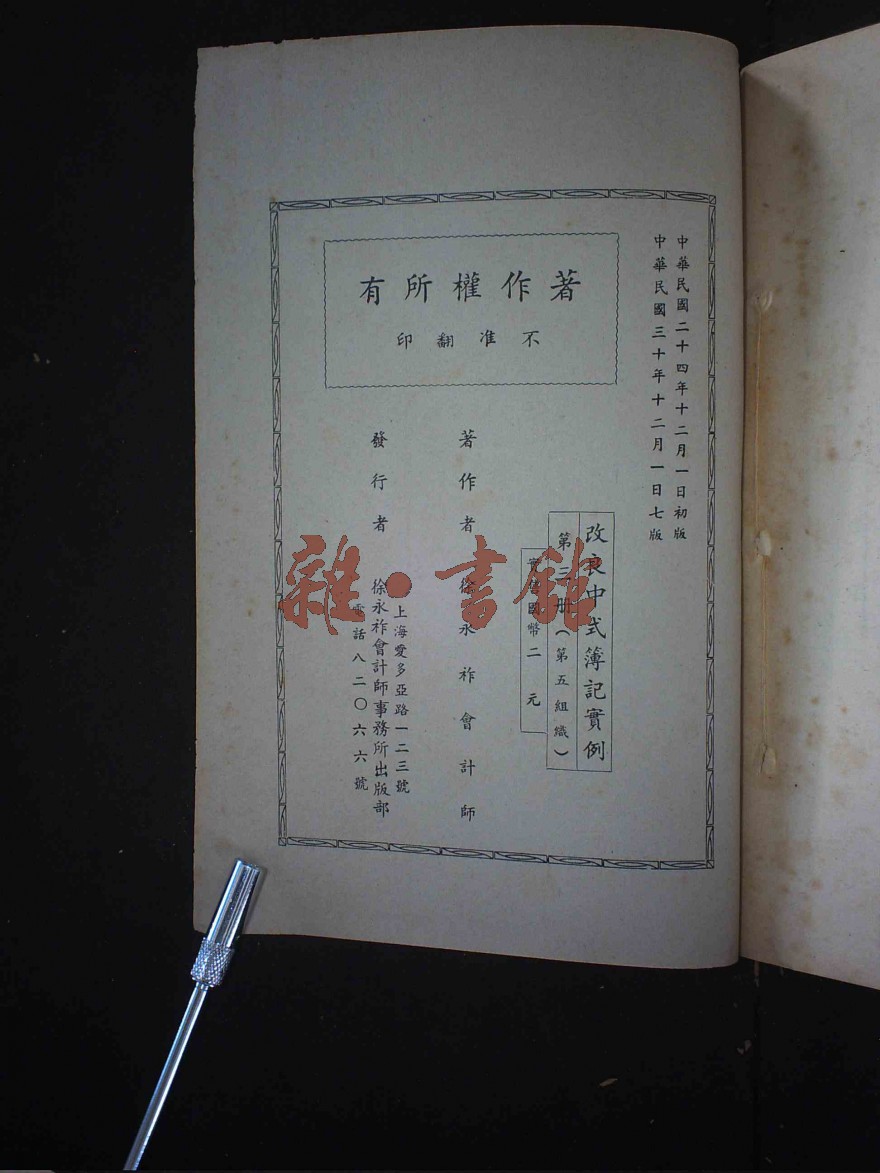 中華民國二十四年十二月一日初版
中華民國三十年十二月一日七版
著作權所有
不准翻印
改良中式簿記實例
第三册(第五組織)
實價國幣二元
著作者 徐永祚會計師
發行者 徐永祚會計師事務所出版部
上海愛多亞路一二三號
電話八二〇六六號
雜·書館